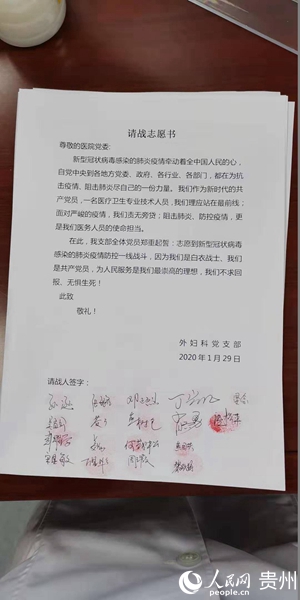 请战志愿书
尊敬的医院党委:
新型冠状病毒感染的肺炎疫情牵动着全中国人民的心，
自党中央到各地方党委、政府、各行业、各部门，都在为抗
击疫情、阻击肺炎尽自己的一份力量。我们作为新时代的共
产党员，一名医疗卫生专业技术人员，我们理应站在最前线;
面对严峻的疫情，我们责无旁贷；阻击肺炎、防控疫情，更
是我们医务人员的使命担当。
在此，我支部全体党员郑重起誓：志愿到新型冠状病毒
感染的肺炎疫情防控一线战斗，因为我们是白衣战士、我们
是共产党员，为人民服务是我们最崇高的理想，我们不求回
报、无惧生死！
此致
敬礼！
外妇科党支部
2020年1月29日
请战人签字：
人民网 贵州
people.cn